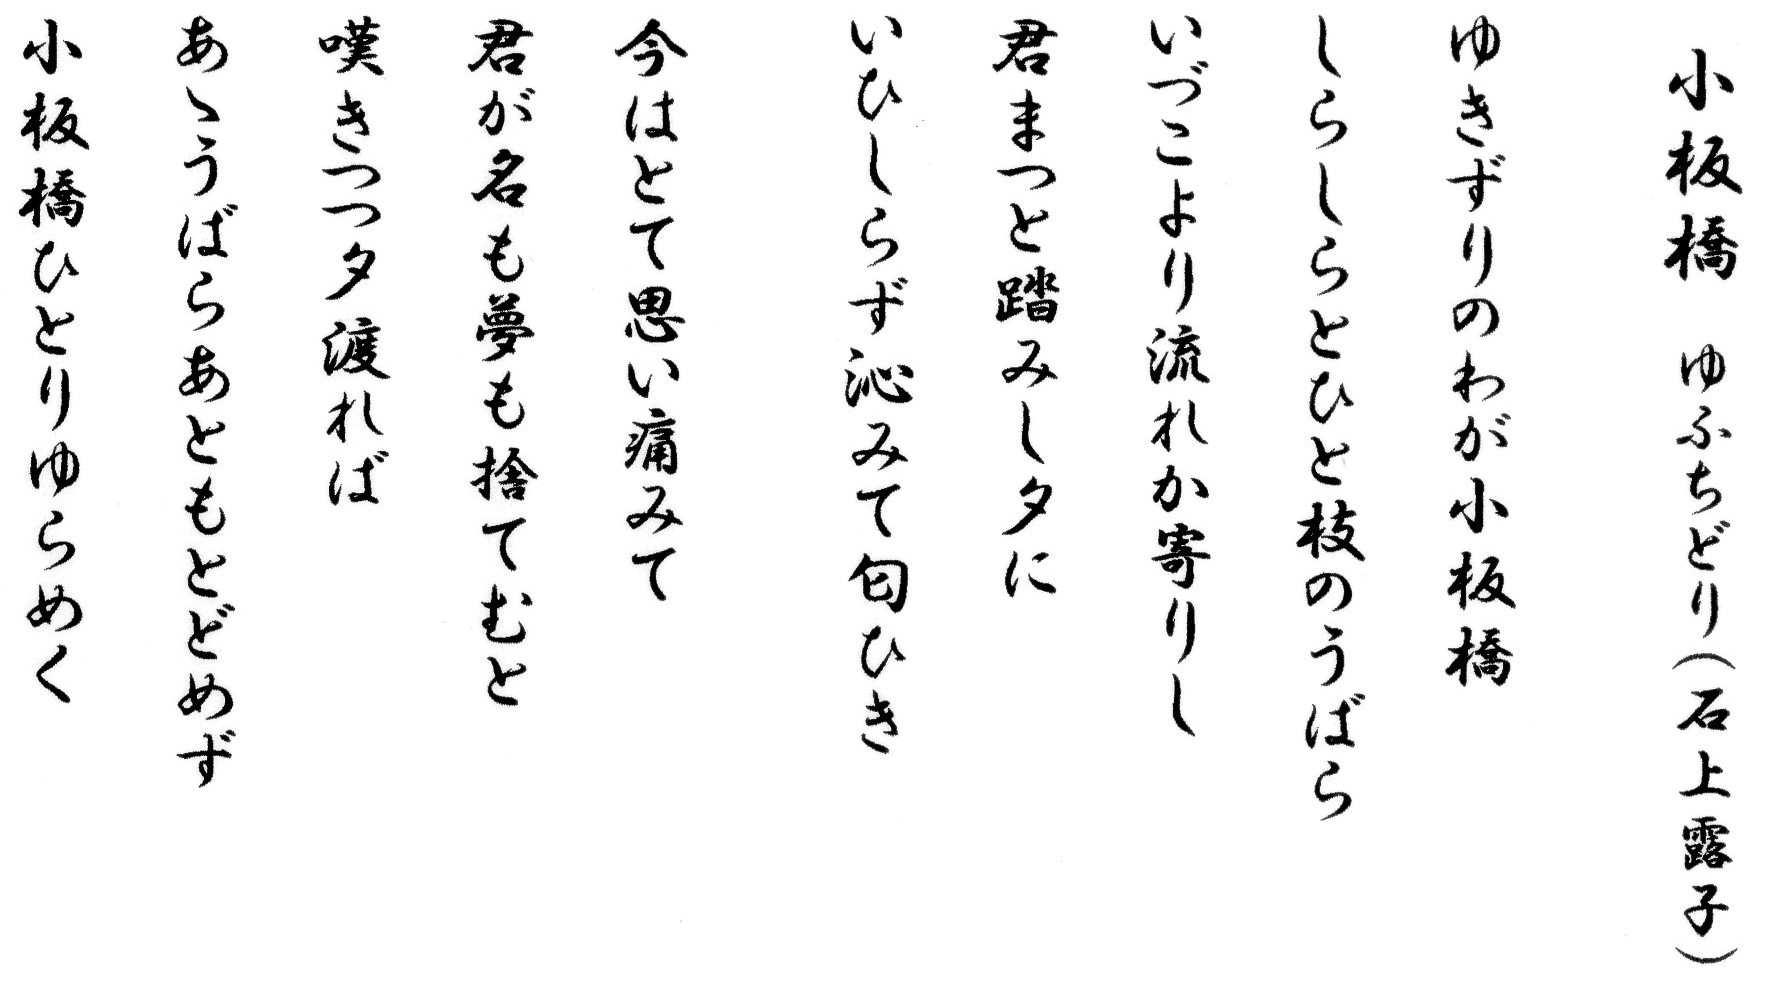 小板橋　ゆふちどり（石上露子）
ゆきずりのわが小板橋
しらしらとひと枝のうばら
いづこより流れか寄りし
君まつと踏みし夕に
いひしらず沁みて匂ひき
今はとて思い痛みて
君が名も夢も捨てむと
嘆きつつ夕渡れば
あゝうばらあともとどめず
小板橋ひとりゆらめく